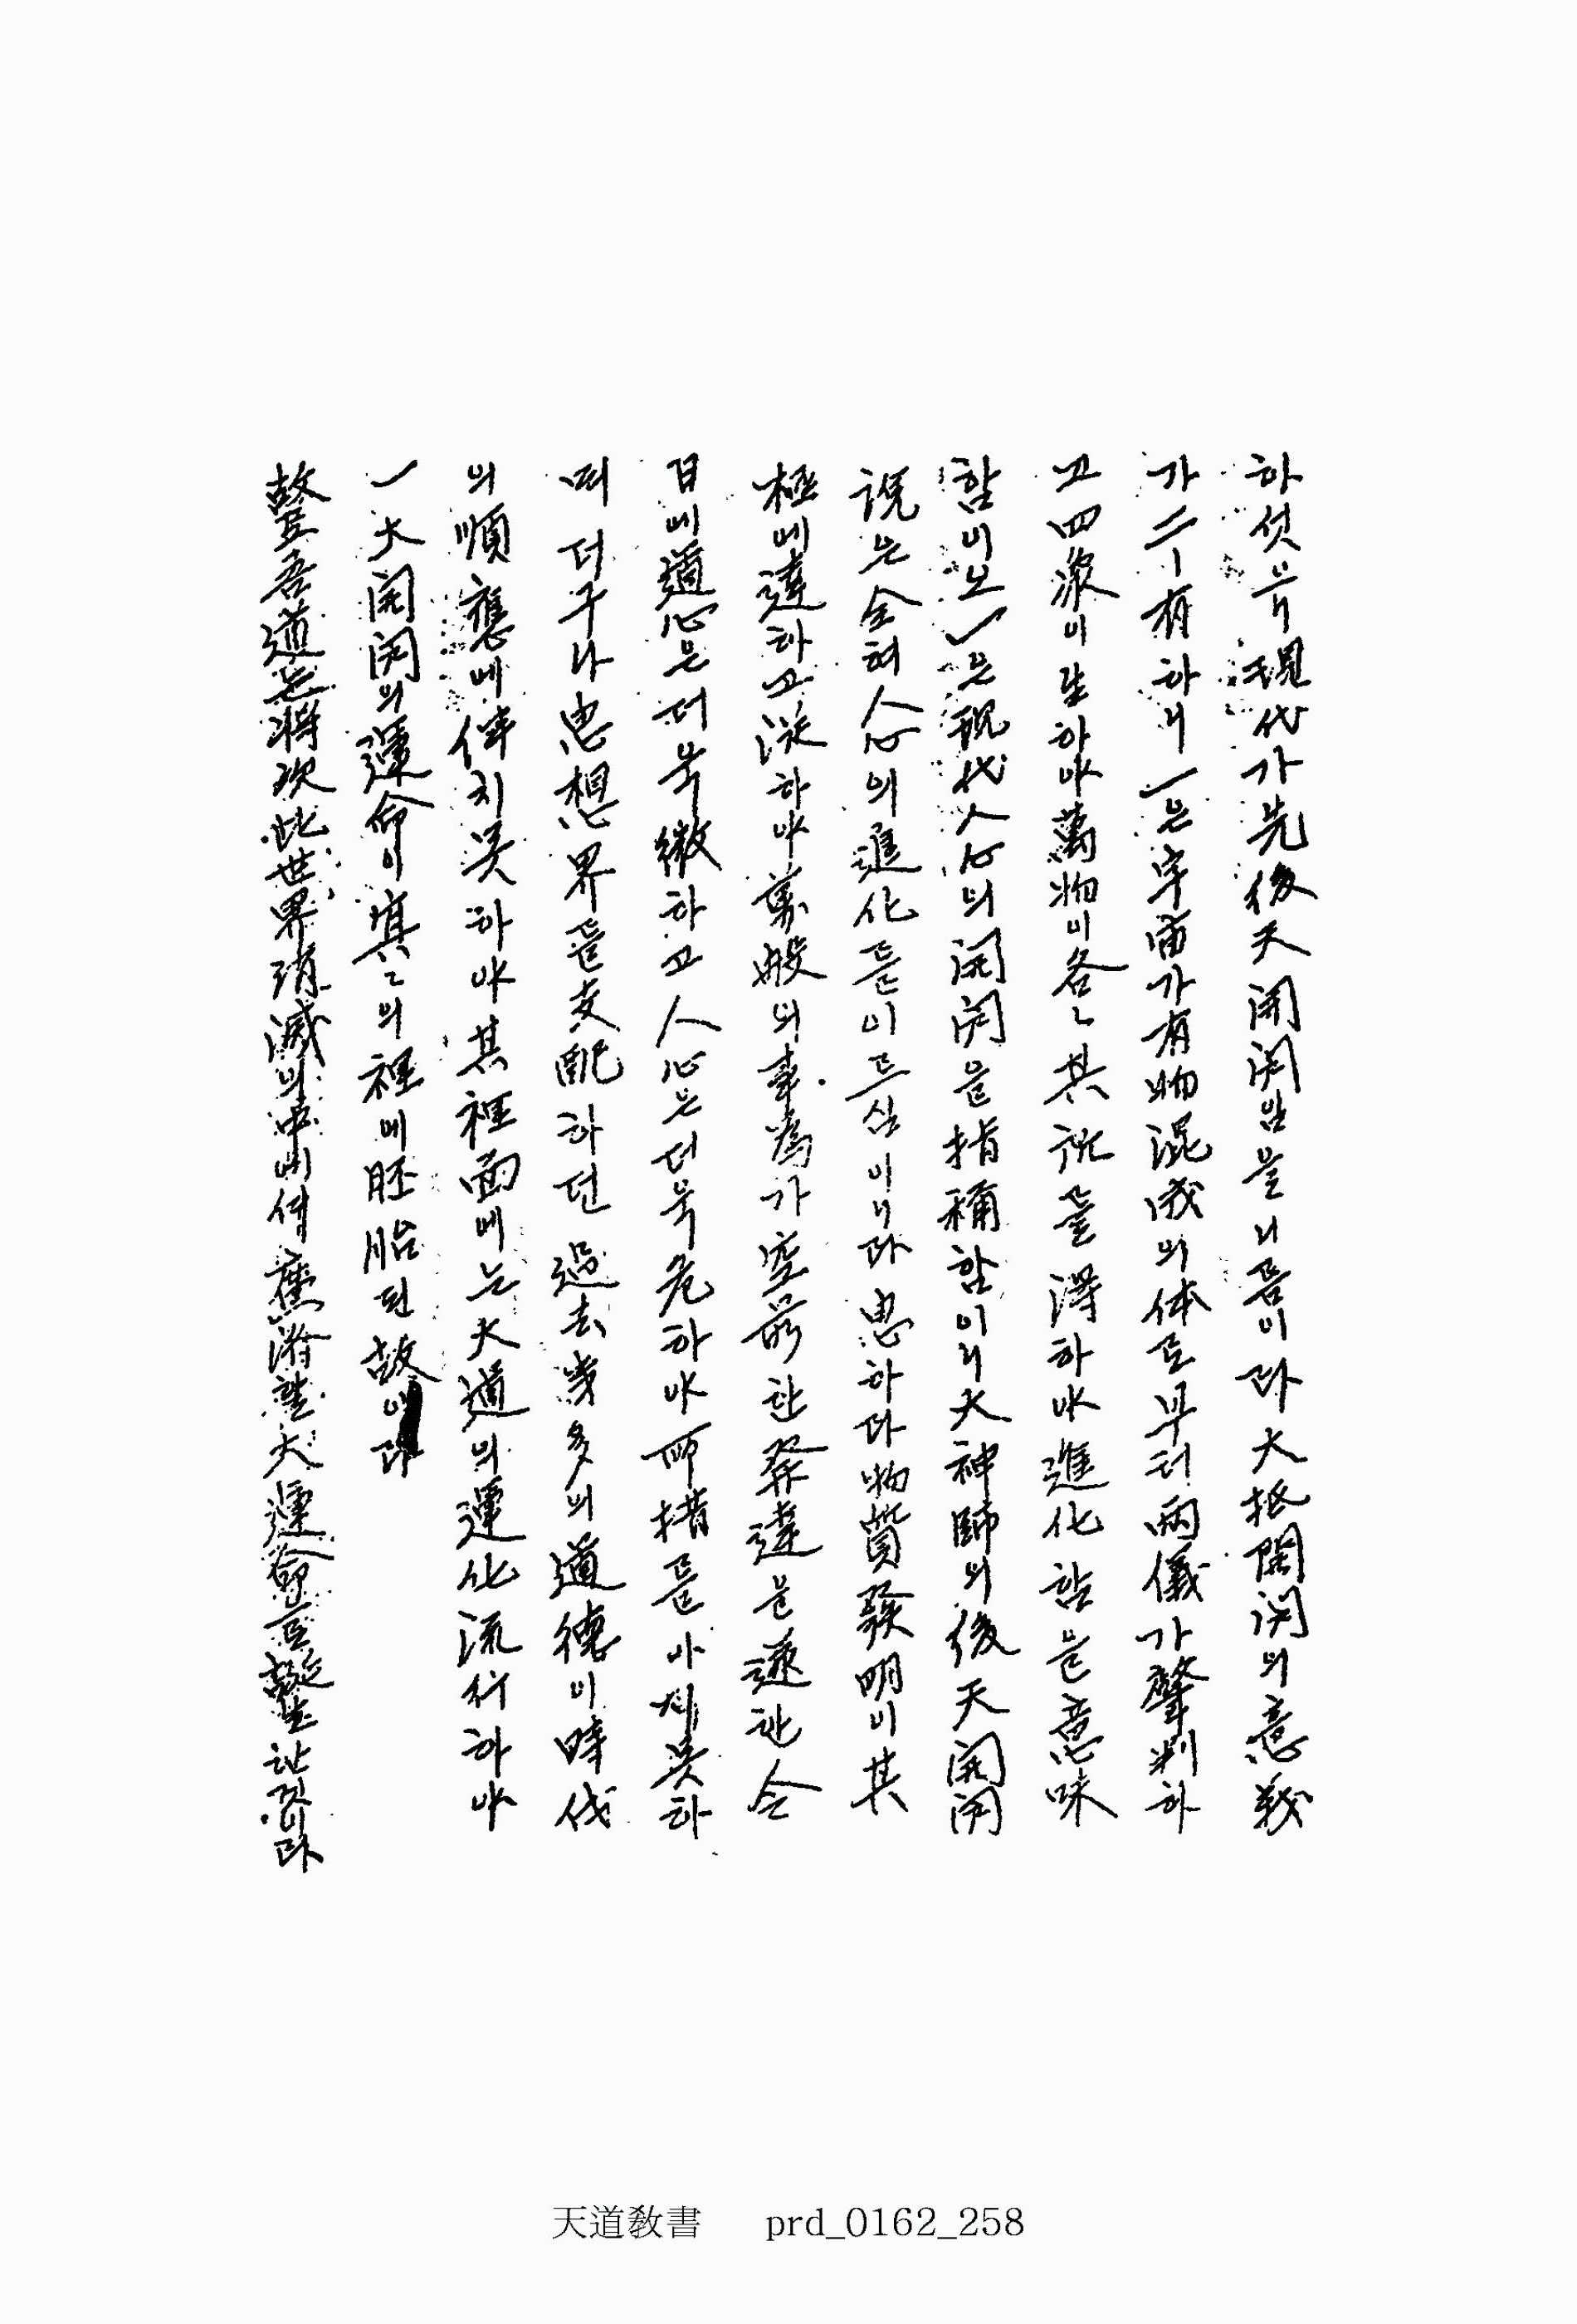 하섯으니 現代가 先後天 開闢암을 니름이라 大抵 開闢의 意義
가 二가 有하니 一은 宇宙가 有物混成의 体로부터 兩儀가 肇判하
고 四象이 生하야 萬物이 各ゝ 其 을 得하야 進化함을 意味
함이오 一은 現代人心의 開闢을 指稱함이니 大神師의 後天開闢
說은 全혀 人心의 進化를 이르심이니라 思하라 物質發明이 其
極에 達하고 從하야 萬般의 事爲가 空前한 發達을 遂한 今
日에 道心은 더욱 微하고 人心은 더욱 危하야 所措를 아지못하
며 더구나 思想界를 支配하던 過去 幾多의 道德이 時代
의 順應에 伴치못하야 其 裡面에는 大道의 運化流行하야
一大開闢의 運命이 冥ゝ의 裡에 胚胎된 故이라
吾道는 將次 此世界 消滅의 中에서 大運命으로 한것이라
天道敎書 prd_0162_258